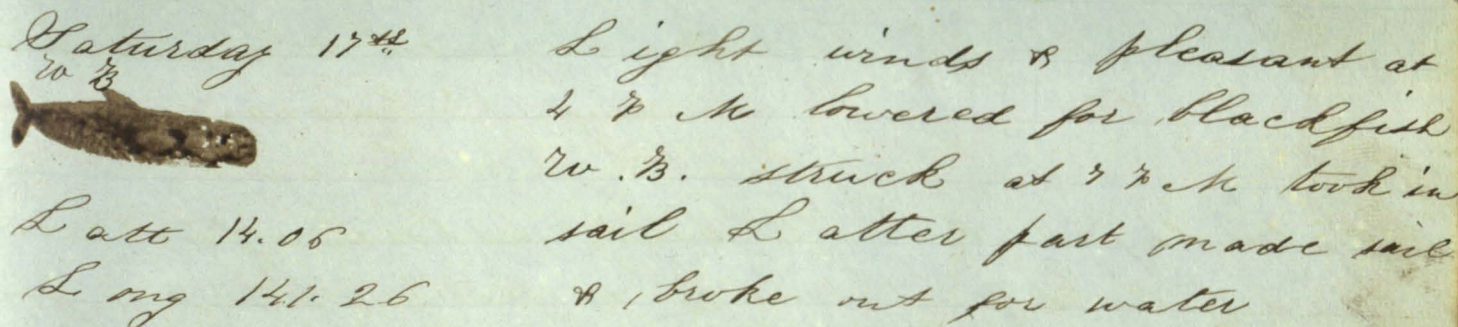 Saturday 17th
W B
Latt 14.06
Long 141.26
Light winds & pleasant at
4 P M lowered for blackfish
W. B. struck at 7 P M took in
sail Latter part made sail
& broke out for water